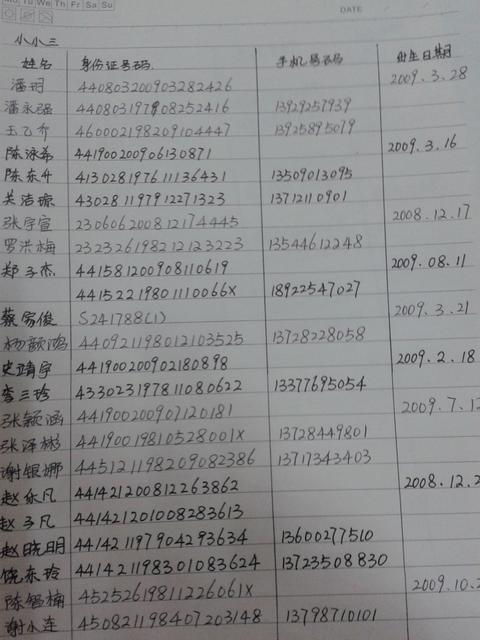 Mo Tu We Th Fr Sa Su
DATE
小小三
姓名 身份证号码. 手机号码 出生日期
潘玥 440803200903282426 2009.3.28
潘永强 440803197908252416 13929257939
王乙芥 460002198209104447 13925895079
陈泳希 441900200906130871 2009.3.16
陈东升 413028197611136431 13509013095
吴洁琼 430281197912271323 13712110901
张宇宣 230606200812174445 2008.12.17
罗洪梅 232326198212123223 13544612248
郑子杰 441581200908110619 2009.08.11
44152219801110066X 18922547027
蔡家俊 S241788(1) 2009.3.21
杨颜鸿 440921198012103525 13728228058
史靖宇 441900200902180898 2009.2.18
李三珍 433023197811080622 13377695054
张颖涵 441900200907120181 2009.7.12
张泽彬 44190019810528001X 13728449801
谢银娜 445121198209082386 13717343403
赵欣凡 441421200812263862 2008.12.2
赵子凡 441421201008283613
赵晓明 441421197904293634 13600277510
饶东玲 441421198301083624 13723508830
陈智楠 45252619811226061X 2009.10.
谢小连 450821198407203148 13798710101